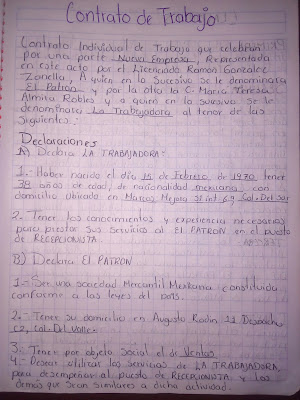 Contrato de Trabajo
Contrato Individual de Trabajo que celebran
por una parte Nueva Empresa, Representada
en este acto por el Licenciado Ramon Gonzalez
Zorella, A quien en lo Sucesivo se le denominara
El Patron y por la otra la C. Maria Teresa
Almira Robles y a quien en lo sucesivo se le
denominara La Trabajadora al tenor de las
siguientes:
Declaraciones
A) Declara LA TRABAJADORA:
1.- Haber nacido el dia 15 de Febrero de 1970 tener
39 años de edad, de nacionalidad mexicana con
domicilio ubicado en Marcos Mejora int 69 Col. Del Sur
2.- Tener los conocimientos y experiencia necesarios
para prestar sus servicios al EL PATRON en el puesto
de RECEPCIONISTA.
B) Declara El PATRON
1.- Ser una sociedad Mercantil Mexicana constituida
conforme a las leyes del pais.
2.- Tener su domicilio en Augusto Rodin 11 Despacho
C2, Col. Del Valle.
3.- Tener por objeto Social el de Ventas
4.- Desear utilizar los servicios de LA TRABAJADORA
para desempeñar el puesto de RECEPCIONISTA y los
demás que sean similares a dicha actividad.